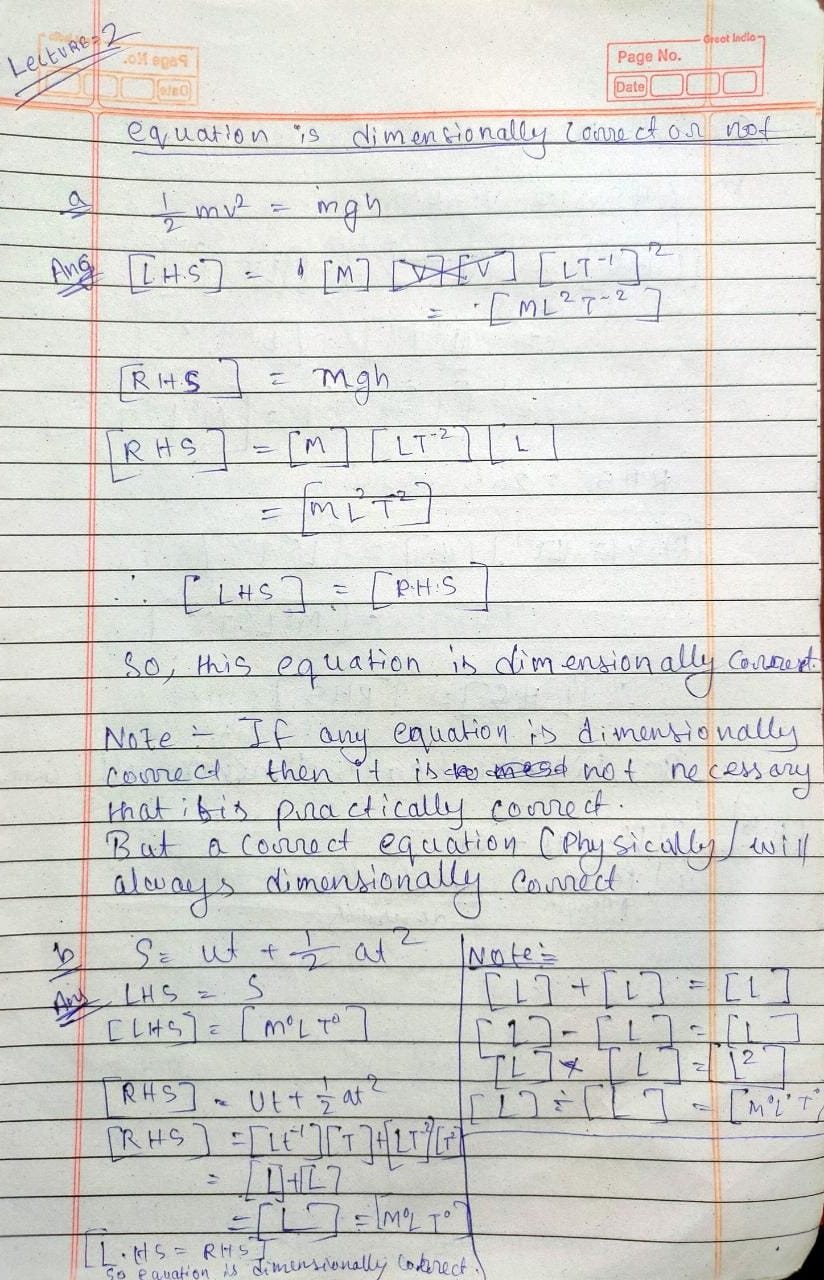 Lecture=2
Great India
Page No.
Date
equation is dimensionally correct or not
a 1/2 mv² = mgh
Ans [LH.S] = [M] [LT⁻¹]²
= [ML²T⁻²]
[RH.S] = mgh
[RHS] = [M] [LT⁻²] [L]
= [ML²T⁻²]
∴ [LHS] = [R.H.S]
So, this equation is dimensionally correct.
Note :- If any equation is dimensionally
correct then it is not necessary
that it is practically correct.
But a correct equation (Physically) will
always dimensionally correct
b S = ut + 1/2 at²
Ans LHS = S
[LHS] = [M⁰LT⁰]
[RHS] = Ut + 1/2 at²
[RHS] = [Lt⁻¹][T]+[LT⁻²][T²]
= [L]+[L]
= [L] = [M⁰LT⁰]
[L.HS = RHS]
So equation is dimensionally correct.
Note :=
[L] + [L] = [L]
[L] - [L] = [L]
[L] × [L] = [L²]
[L] ÷ [L] = [M⁰L⁰T⁰]